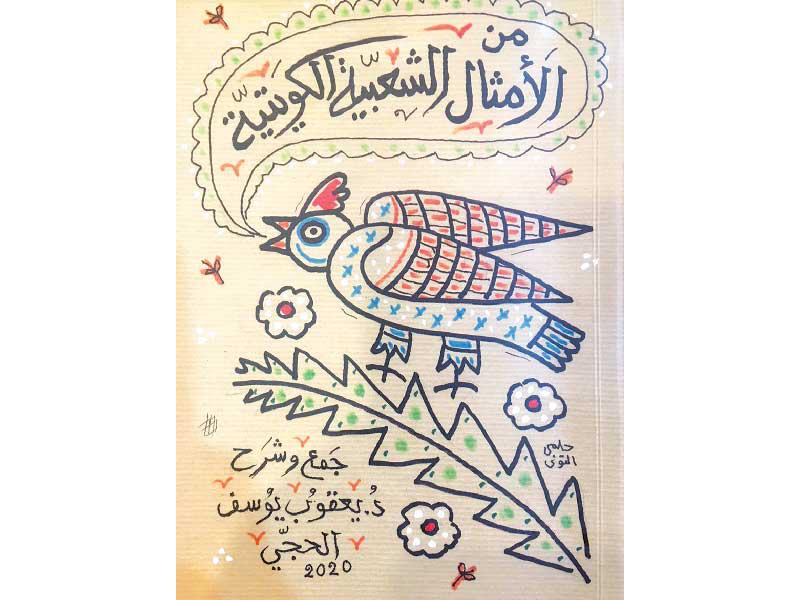 من
الأمثال الشعبيّة الكويتيّة
حلمي
التوني
جمع وشرح
د. يعقوب يوسف
الحجّي
2020